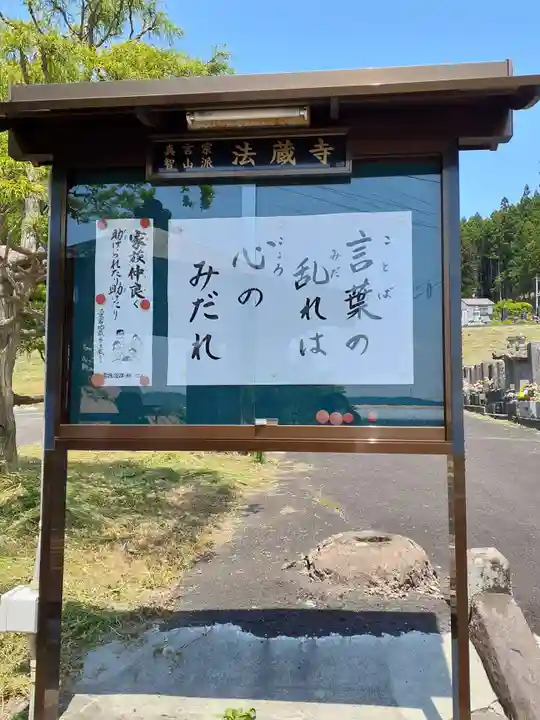 真言宗
智山派
法蔵寺
言葉の
ことば
乱れは
みだ
心の
こころ
みだれ
家族仲良く
助けられたり助けたり